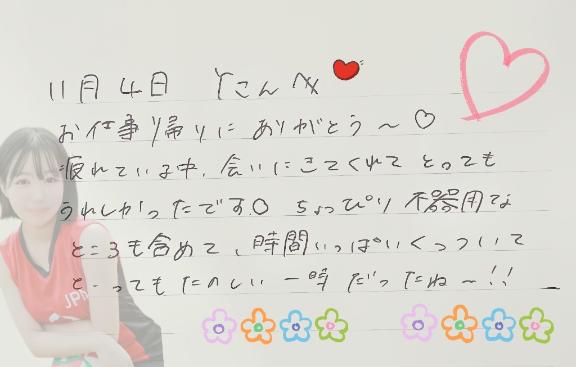 11月4日 Yさんへ
お仕事帰りにありがとう〜♡
疲れている中、会いにきてくれてとっても
うれしかったです♡ ちょっぴり不器用な
ところも含めて、時間いっぱいくっついて
とーってもたのしい一時だったね〜!!
JPN